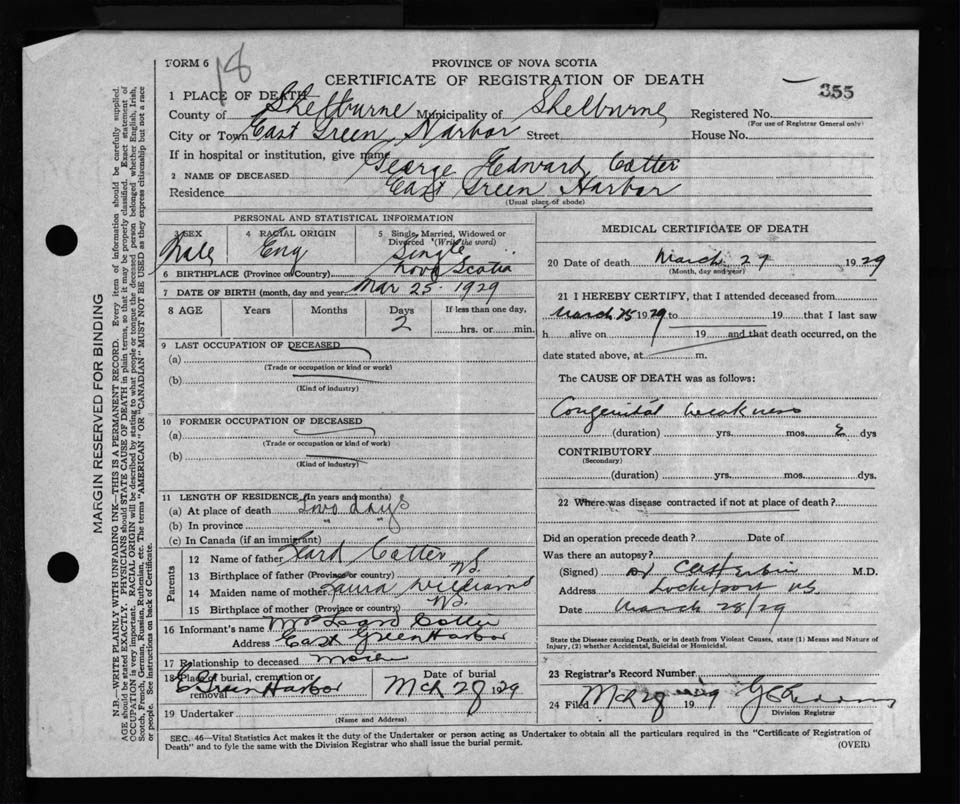 FORM 6
18
PROVINCE OF NOVA SCOTIA
CERTIFICATE OF REGISTRATION OF DEATH
355
1 PLACE OF DEATH
County of Shelburne Municipality of Shelburne Registered No.
(For use of Registrar General only)
City or Town East Green Harbor Street House No.
If in hospital or institution, give name
2 NAME OF DECEASED George Edward Cotter
Residence East Green Harbor
(Usual place of abode)
PERSONAL AND STATISTICAL INFORMATION
3 SEX Male 4 RACIAL ORIGIN Eng 5 Single, Married, Widowed or Divorced (Write the word) Single
6 BIRTHPLACE (Province or Country) Nova Scotia
7 DATE OF BIRTH (month, day and year) Mar 25 1929
8 AGE Years Months Days 2 If less than one day, hrs. or min.
9 LAST OCCUPATION OF DECEASED
(a)
(Trade or occupation or kind or work)
(b)
(Kind of industry)
10 FORMER OCCUPATION OF DECEASED
(a)
(Trade or occupation or kind or work)
(b)
(Kind of industry)
11 LENGTH OF RESIDENCE (In years and months)
(a) At place of death Two days
(b) In province " "
(c) In Canada (if an immigrant)
Parents
12 Name of father Cotter
13 Birthplace of father (Province or country) N.S.
14 Maiden name of mother Laura Williams
15 Birthplace of mother (Province or country) N.S.
16 Informant's name Mrs Cotter
Address East Green Harbor
17 Relationship to deceased
18 Place of burial, cremation or removal E Green Harbor Date of burial Mch 28 1929
19 Undertaker
(Name and Address)
MEDICAL CERTIFICATE OF DEATH
20 Date of death March 27 1929
(Month, day and year)
21 I HEREBY CERTIFY, that I attended deceased from
March 25 1929 to 19 that I last saw
h alive on 19 and that death occurred, on the
date stated above, at m.
The CAUSE OF DEATH was as follows:
Congenital weakness
(duration) yrs. mos. 2 dys
CONTRIBUTORY
(Secondary)
(duration) yrs. mos. dys.
22 Where was disease contracted if not at place of death?
Did an operation precede death? Date of
Was there an autopsy?
(Signed) M.D.
Address Lockeport N.S.
Date March 28/29
State the Disease causing Death, or in death from Violent Causes, state (1) Means and Nature of
Injury, (2) whether Accidental, Suicidal or Homicidal.
23 Registrar's Record Number
24 Filed Mch 28 1929
Division Registrar
SEC. 46—Vital Statistics Act makes it the duty of the Undertaker or person acting as Undertaker to obtain all the particulars required in the "Certificate of Registration of
Death" and to fyle the same with the Division Registrar who shall issue the burial permit.
(OVER)
MARGIN RESERVED FOR BINDING
N.B.—WRITE PLAINLY WITH UNFADING INK—THIS IS A PERMANENT RECORD. Every item of information should be carefully supplied.
AGE should be stated EXACTLY. PHYSICIANS should STATE CAUSE OF DEATH in plain terms, so that it may be properly classified. Exact statement of
OCCUPATION is very important. RACIAL ORIGIN will be described by stating to what people or tongue the deceased person belonged whether English, Irish,
Scotch, French, German, Russian, Ruthenian, etc. The terms "AMERICAN" OR "CANADIAN" MUST NOT BE USED as they express citizenship but not a race
or people. See instructions on back of Certificate.